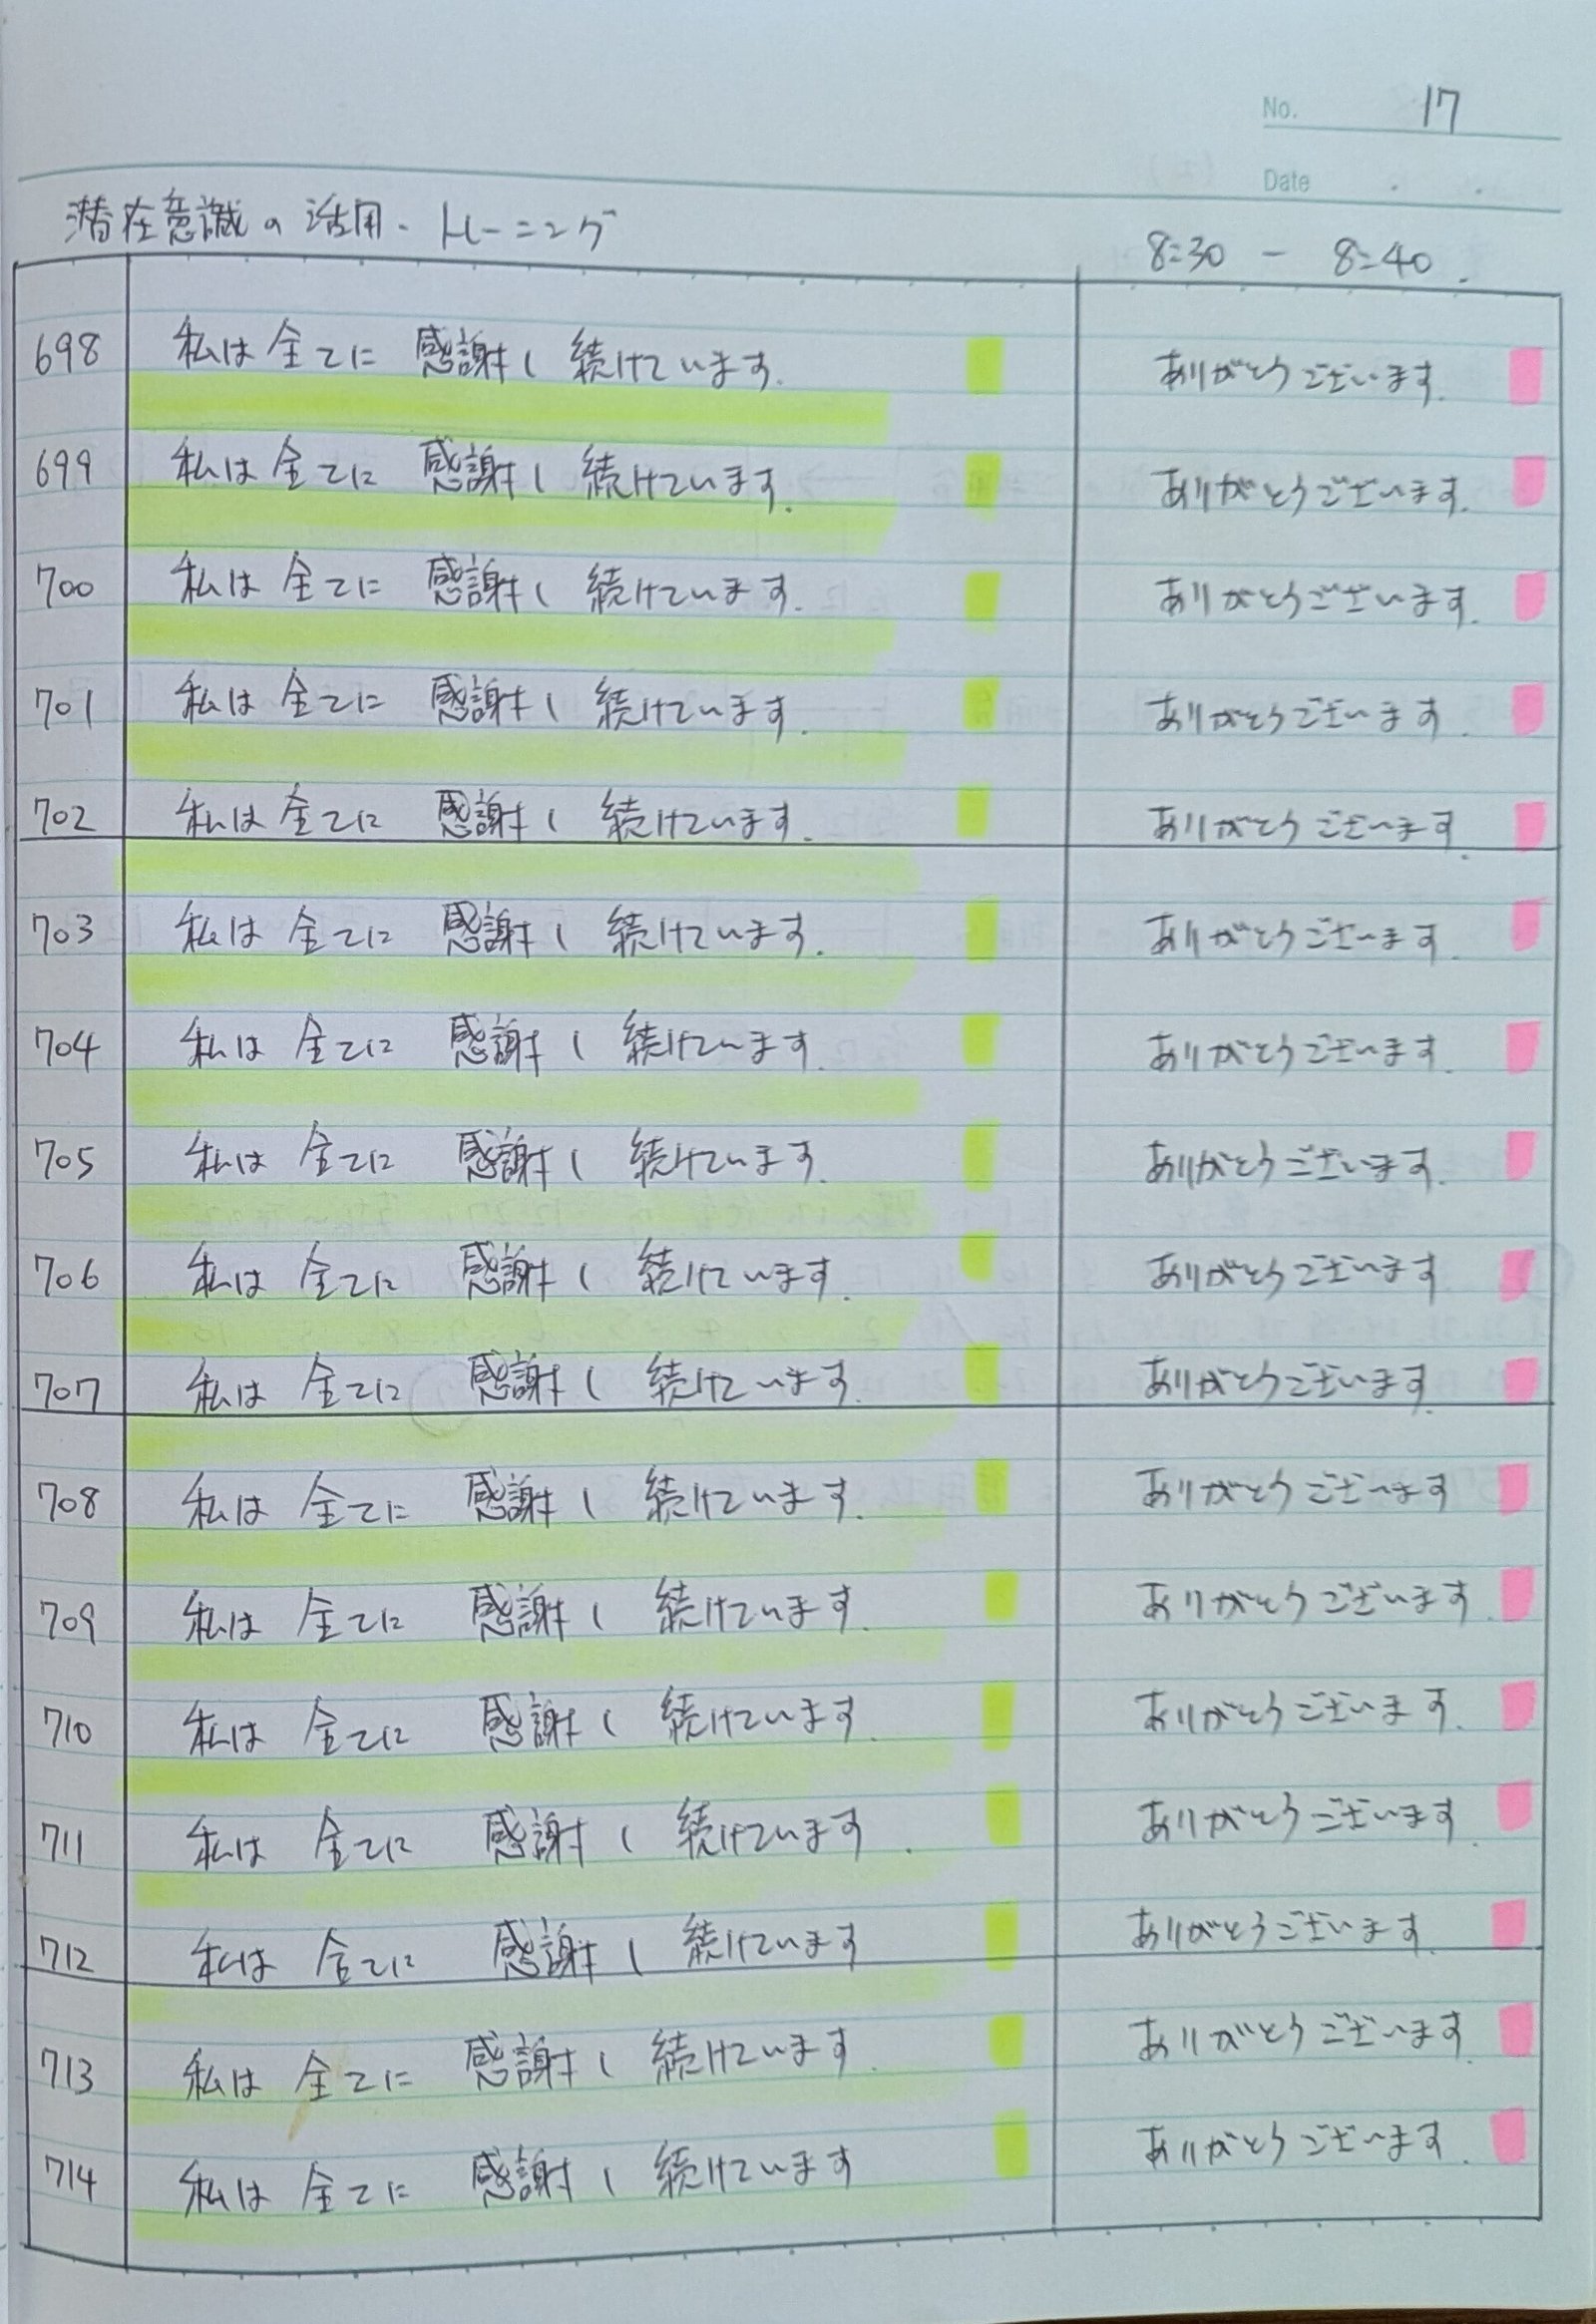 No. 17
Date
潜在意識の活用・トレーニング
8:30 - 8:40.
698 私は全てに 感謝し 続けています. ありがとうございます.
699 私は全てに 感謝し 続けています. ありがとうございます.
700 私は全てに 感謝し 続けています. ありがとうございます.
701 私は全てに 感謝し 続けています. ありがとうございます.
702 私は全てに 感謝し 続けています. ありがとうございます.
703 私は全てに 感謝し 続けています. ありがとうございます.
704 私は全てに 感謝し 続けています. ありがとうございます.
705 私は全てに 感謝し 続けています. ありがとうございます.
706 私は全てに 感謝し 続けています. ありがとうございます.
707 私は全てに 感謝し 続けています. ありがとうございます.
708 私は全てに 感謝し 続けています. ありがとうございます
709 私は全てに 感謝し 続けています. ありがとうございます.
710 私は全てに 感謝し 続けています. ありがとうございます.
711 私は全てに 感謝し 続けています. ありがとうございます.
712 私は全てに 感謝し 続けています ありがとうございます.
713 私は全てに 感謝し 続けています. ありがとうございます.
714 私は全てに 感謝し 続けています ありがとうございます.